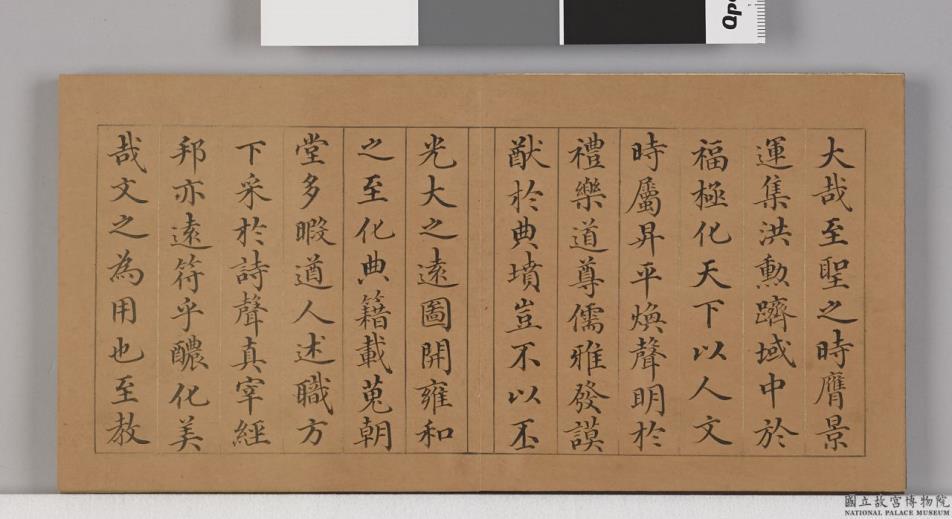 大哉至聖之時膺景
運集洪勲躋域中於
福極化天下以人文
時屬昇平煥聲明於
禮樂道尊儒雅發謨
猷於典墳豈不以丕
光大之遠圖開雍和
之至化典籍載蒐朝
堂多暇遒人述職方
下采於詩聲真宰經
邦亦遠符乎醲化美
哉文之為用也至教
國立故宮博物院
NATIONAL PALACE MUSEUM